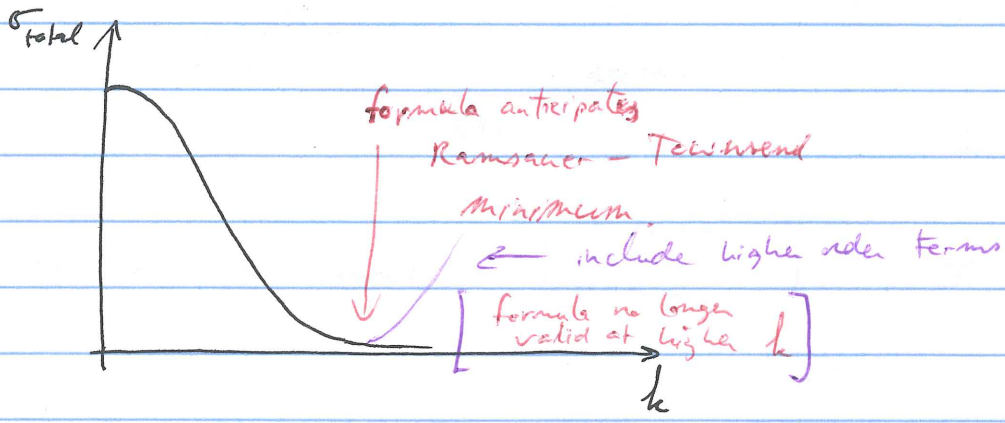 σtotal
formula anticipates
Ramsauer - Townsend
minimum.
← include higher order terms
[ formula no longer
valid at higher k ]
k